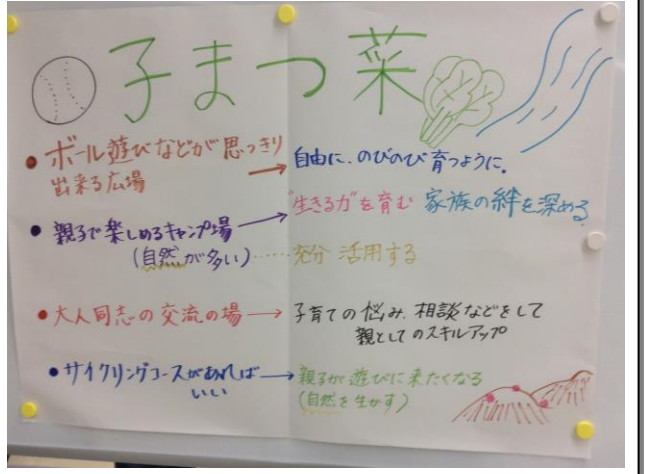 子まつ菜
●ボール遊びなどが思っきり
出来る広場
→自由に、のびのび育つように。
●親子で楽しめるキャンプ場→
"生きる力"を育む 家族の絆を深める
(自然が多い)……充分 活用する
●大人同志の交流の場→子育ての悩み、相談などをして
親としてのスキルアップ
●サイクリングコースがあれば
いい
→親子が遊びに来たくなる
(自然を生かす)